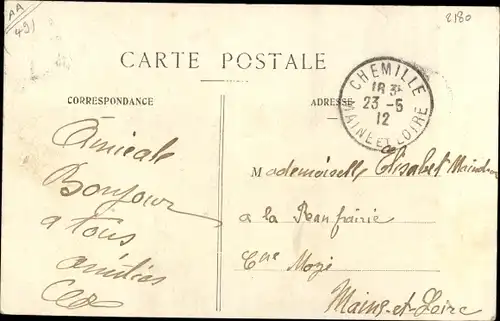 AA
49)
2180
CARTE POSTALE
CORRESPONDANCE
ADRESSE
CHEMILLE
18 3*
23-5
12
MAINE ET LOIRE
Amicale
Bonjour
a tous
amitiés
Mademoiselle Elisabet
a la
Cne Mozé
Mains-et-Loire